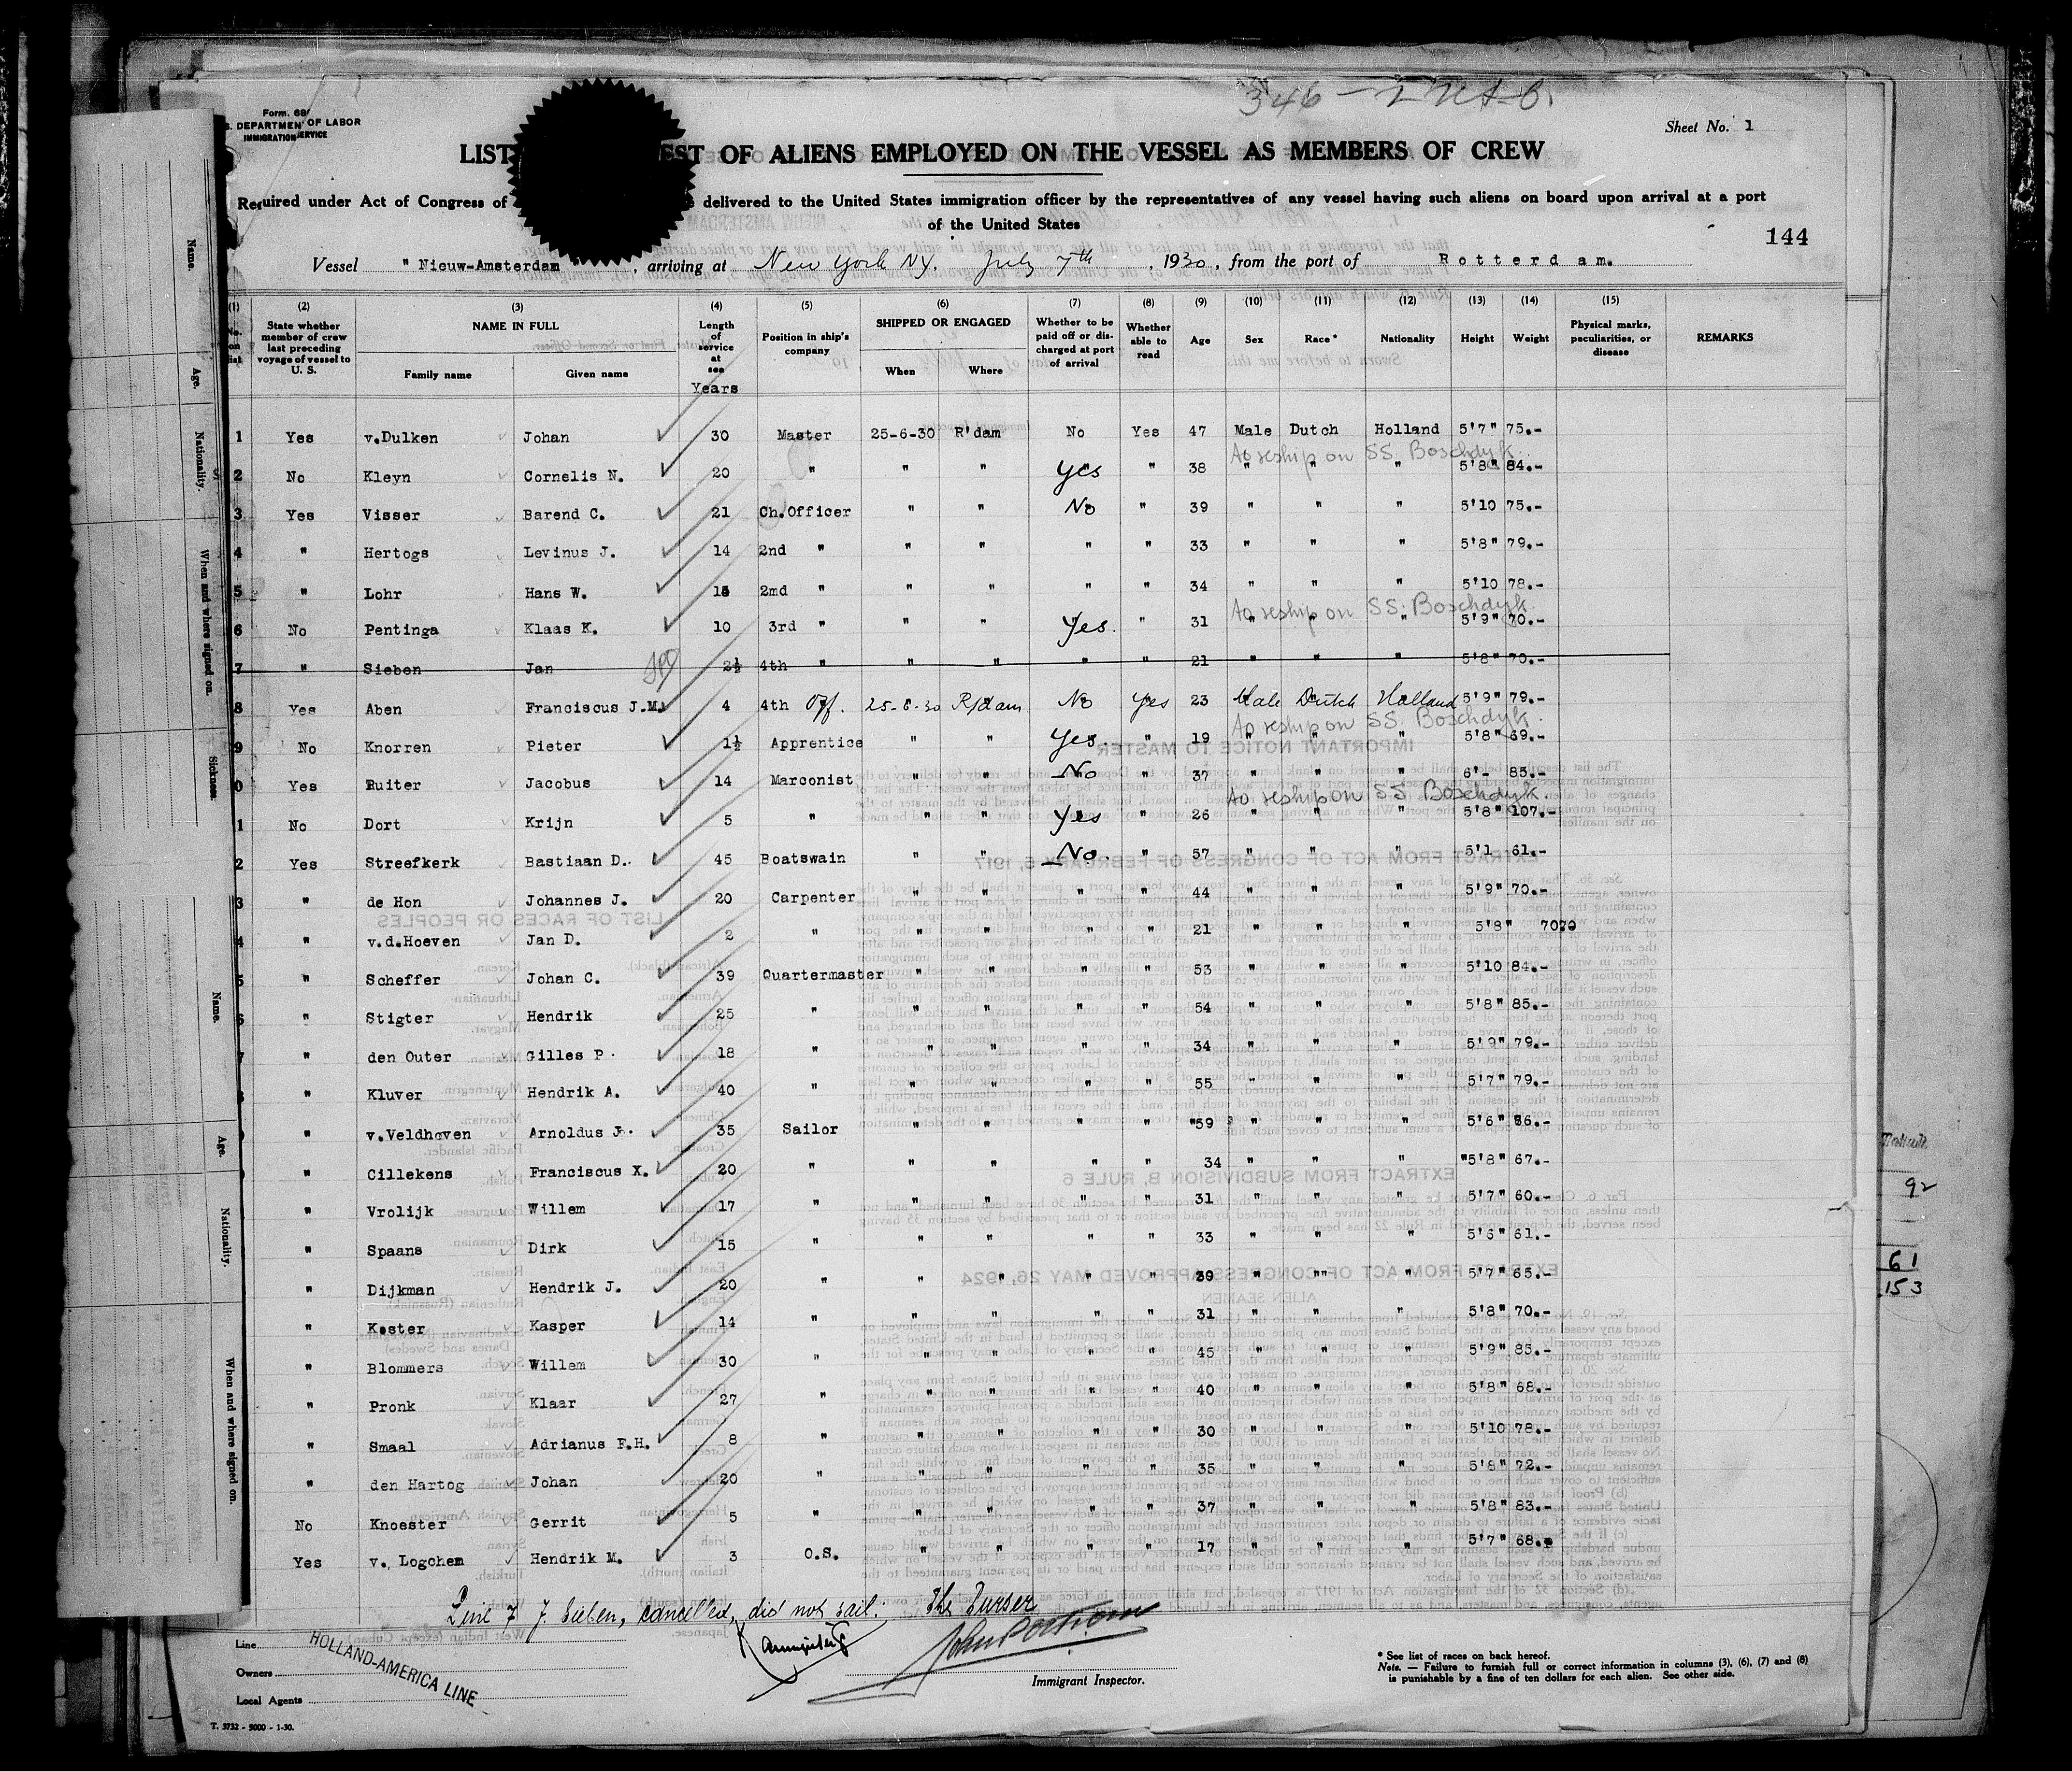 346 -
Form 68
DEPARTMENT OF LABOR
IMMIGRATION SERVICE
Sheet No. 1
LIST EST OF ALIENS EMPLOYED ON THE VESSEL AS MEMBERS OF CREW
Required under Act of Congress of delivered to the United States immigration officer by the representatives of any vessel having such aliens on board upon arrival at a port
of the United States
144
Vessel " Nieuw-Amsterdam , arriving at New York NY. July 7th , 1930, from the port of Rotterdam.
(1) (2) (3) (4) (5) (6) (7) (8) (9) (10) (11) (12) (13) (14) (15)
No. on list State whether member of crew last preceding voyage of vessel to U. S. NAME IN FULL Family name Given name Length of service at sea Years Position in ship's company SHIPPED OR ENGAGED When Where Whether to be paid off or discharged at port of arrival Whether able to read Age Sex Race* Nationality Height Weight Physical marks, peculiarities, or disease REMARKS
1 Yes v.Dulken Johan 30 Master 25-6-30 R'dam No Yes 47 Male Dutch Holland 5'7" 75.-
To reship on SS. Boschdyk.
2 No Kleyn Cornelis N. 20 " " " Yes " 38 " " " 5'8" 84.-
3 Yes Visser Barend C. 21 Ch.Officer " " No " 39 " " " 5'10 75.-
4 " Hertogs Levinus J. 14 2nd " " " " " 33 " " " 5'8" 79.-
5 " Lohr Hans W. 15 2md " " " " " 34 " " " 5'10 78.-
To reship on SS. Boschdyk.
6 No Pentinga Klaas K. 10 3rd " " " Yes. " 31 " " " 5'9" 70.-
7 " Sieben Jan 2½ 4th " " " " " 21 " " " 5'8" 70.-
8 Yes Aben Franciscus J.M. 4 4th Off. 25-6-30 R/dam No Yes 23 Male Dutch Holland 5'9" 79.-
To reship on SS. Boschdyk.
9 No Knorren Pieter 1½ Apprentice " " Yes. " 19 " " " 5'8" 69.-
0 Yes Ruiter Jacobus 14 Marconist " " No " 37 " " " 6'- 85.-
To reship on SS Boschdyk.
1 No Dort Krijn 5 " " " Yes " 26 " " " 5'8" 107.-
2 Yes Streefkerk Bastiaan D. 45 Boatswain " " No. " 57 " " " 5'1 61.-
3 " de Hon Johannes J. 20 Carpenter " " " " 44 " " " 5'9" 70.-
4 " v.d.Hoeven Jan D. 2 " " " " " 21 " " " 5'8" 7070
5 " Scheffer Johan C. 39 Quartermaster " " " " 53 " " " 5'10 84.-
6 " Stigter Hendrik 25 " " " " " 54 " " " 5'8" 85.-
7 " den Outer Gilles P. 18 " " " " " 34 " " " 5'9" 79.-
" Kluver Hendrik A. 40 " " " " " 55 " " " 5'7" 79.-
" v.Veldhoven Arnoldus J. 35 Sailor " " " " 59 " " " 5'6" 66.-
" Cillekens Franciscus X. 20 " " " " " 34 " " " "5'8" 67.-
" Vrolijk Willem 17 " " " " " 31 " " " 5'7" 60.-
" Spaans Dirk 15 " " " " " 33 " " " 5'6" 61.-
" Dijkman Hendrik J. 20 " " " " " 39 " "" " 5'7" 65.-
" Koster Kasper 14 " " " " " 31 " " " 5'8" 70.-
" Blommers Willem 30 " " " " " 45 " " " 5'9" 85.-
" Pronk Klaar 27 " " " " " 40 " " " 5'8" 68.-
" Smaal Adrianus F.H. 8 " " " " " 30 " " " 5'10 78.-
" den Hartog Johan 20 " " " " " 35 " " " 5'8" 72.-
No Knoester Gerrit 5 " " " " " 37 " " " 5'8" 83.-
Yes v. Logchem Hendrik M. 3 O.S. " " " " 17 " " " 5'7" 68.
Line 7 J. Sieben, cancelled, did not sail. The Purser
Line
HOLLAND-AMERICA LINE
Owners
Local Agents
Immigrant Inspector.
* See list of races on back hereof.
Note. — Failure to furnish full or correct information in columns (3), (6), (7) and (8)
is punishable by a fine of ten dollars for each alien. See other side.
T. 3732 - 5000 - 1-30.
Name.
Age.
Nationality.
When and where signed on.
Sickness.
Name.
Age.
Nationality.
When and where signed on.
92
61
153